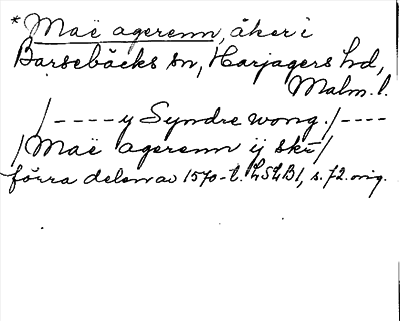 *Maë agerenn, åker i
Barsebäcks sn, Harjagers hd,
Malm. l.
/---- y Syndre wong./----
/Maë agerenn ij skr/
förra delen av 1570-t. LSLB1, s. 72. orig.